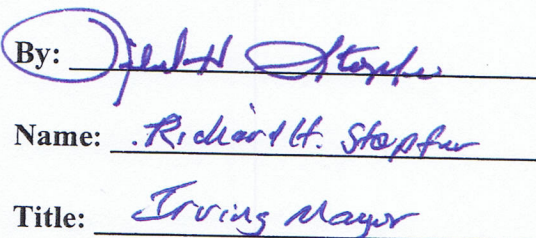 By: Richard H Stopfer
Name: Richard H. Stopfer
Title: Irving Mayor